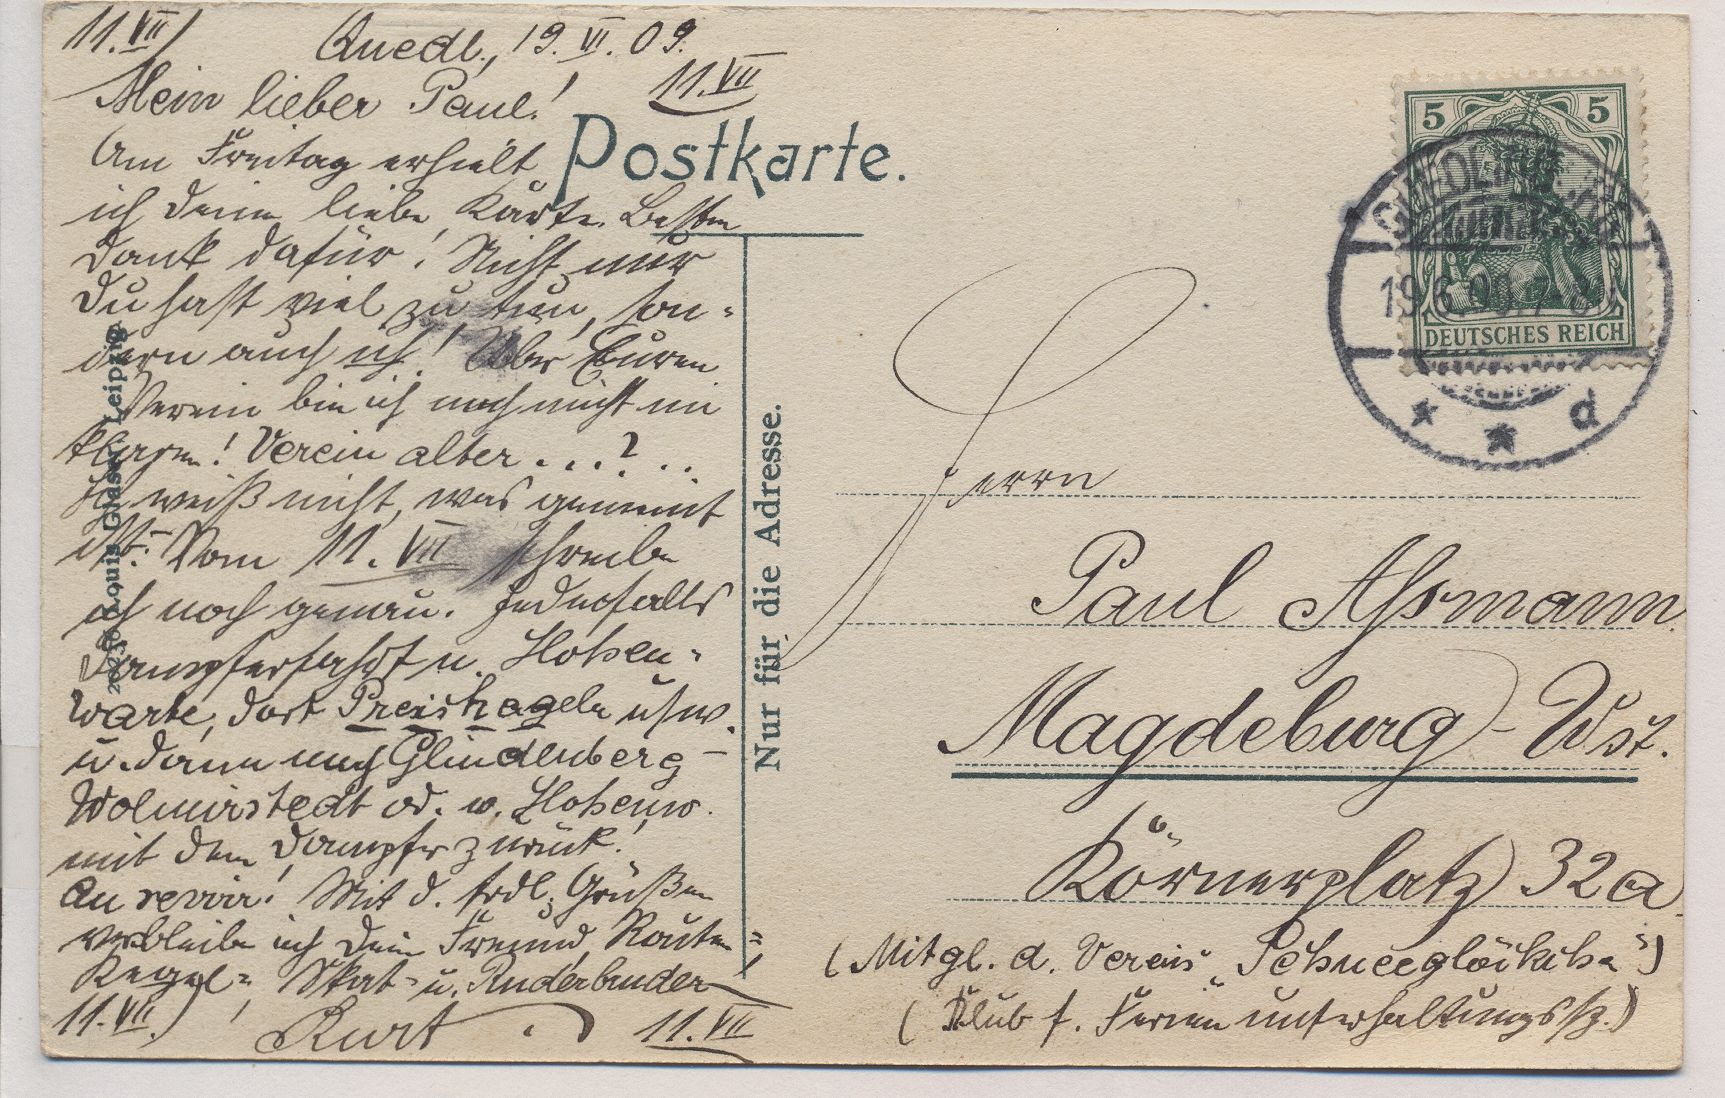 11. VII
Quedl., 19. VI. 09.
11. VII
Mein lieber Paul!
Am Freitag erhielt
ich deine liebe Karte. Besten
Dank dafür! Nicht nur
Du hast viel zu tun, son-
dern auch ich! Über Euren
Verein bin ich noch nicht im
klaren! Verein alter . . . ? . .
Ich weiß nicht, was gemeint
ist. Vom 11. VII schreibe
ich noch genau. Jedenfalls
Dampferfahrt n. Hohen-
warte, dort Preiskegeln usw.
u. dann nach Glindenberg-
Wolmirstedt od. v. Hohenw.
mit dem Dampfer zurück!
Au revoir! Mit d. frdl. Grüßen
verbleibe ich Dein Freund, Rauten-
Kegel- Skat- u. Ruderbruder
Kurt
11. VII.
11. VII
Postkarte.
Nur für die Adresse.
Louis Glaser Leipzig
5 5
DEUTSCHES REICH
QUEDLINBURG
19.6.09.7-8
* * d
Herrn
Paul Assmann
Magdeburg-Wst.
Körnerplatz 32a
(Mitgl. d. Vereis „Schneeglöckche“)
(Klub f. Ferienunterhaltungssp.)